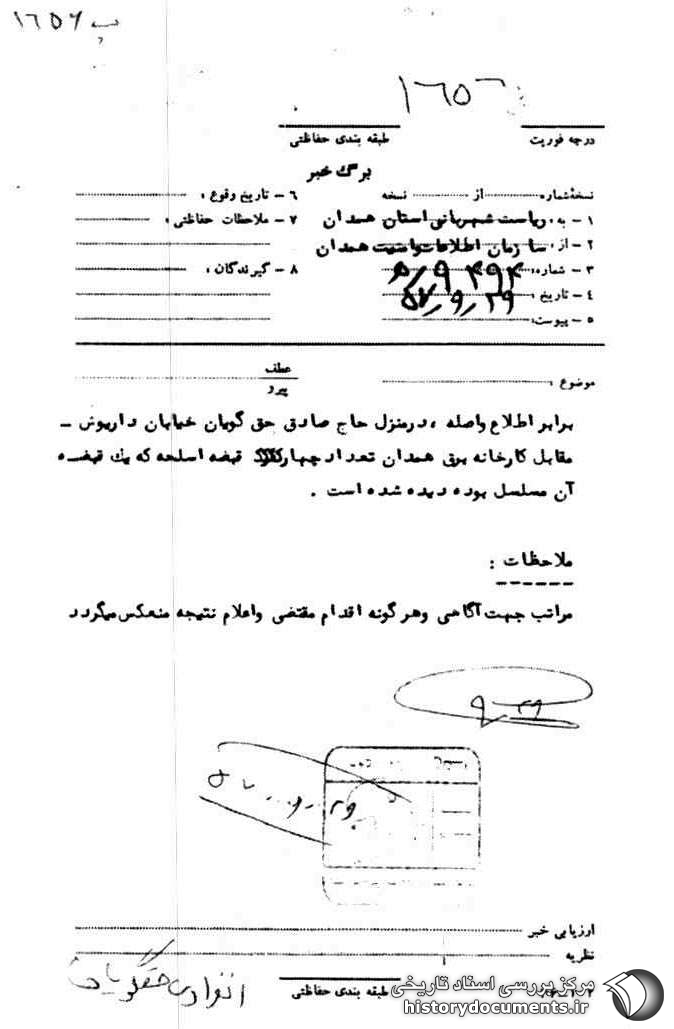 ۱۶۵۶ پ
۱۶۵۶
درجه فوریت
طبقه بندی حفاظتی
برگ خبر
نسخه‌شماره ........ از ........ نسخه
۱ - به: ریاست شهربانی استان همدان
۲ - از: سازمان اطلاعات و امنیت همدان
۳ - شماره:
۴ - تاریخ: ۵۷/۹/۲۹
۵ - پیوست:
۶ - تاریخ وقوع:
۷ - ملاحظات حفاظتی:
۸ - گیرندگان:
موضوع:
عطف
پیرو
برابر اطلاع واصله ، درمنزل حاج صادق حق گویان خیابان داریوش -
مقابل کارخانه برق همدان تعداد چهار قبضه اسلحه که یك قبضه
آن مسلسل بوده دیده شده است .
ملاحظات :
مراتب جهت آگاهی وهرگونه اقدام مقتضی واعلام نتیجه منعکس میگردد
۹/۲۹
۵۷-۹-۲۹
ارزیابی خبر
نظریه
طبقه بندی حفاظتی
انفرادی حقگویان
مرکز بررسی اسناد تاریخی
historydocuments.ir